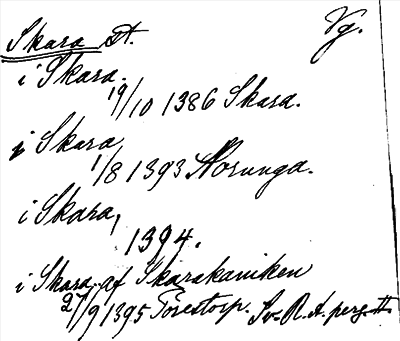 Skara St. Vg.
i Skara.
19/10 1386 Skara.
i Skara
1/8 1393 Norunga.
i Skara,
1394.
i Skara af Skarakaniken
27/9 1395 Torestorp. Sv. R. A. perg.